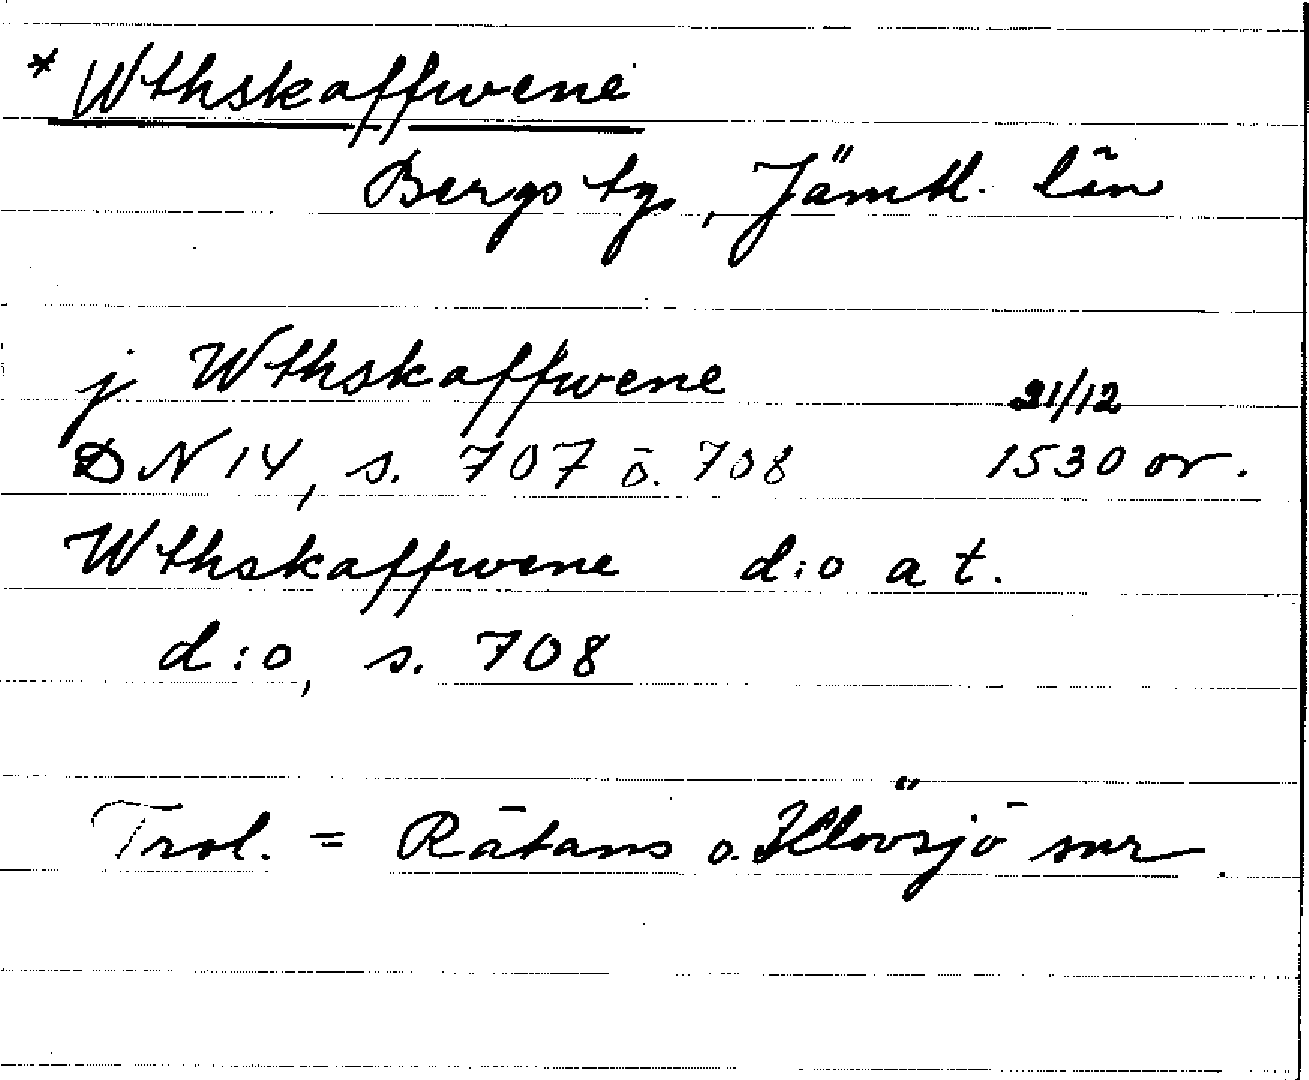 * Wthskaffwene
Bergs tg, Jämtl. län
j Wthskaffwene 21/12
DN 14, s. 707 o. 708 1530 or.
Wthskaffwene d:o a t.
d:o, s. 708
Trol. = Rätans o. Klövsjö snr.